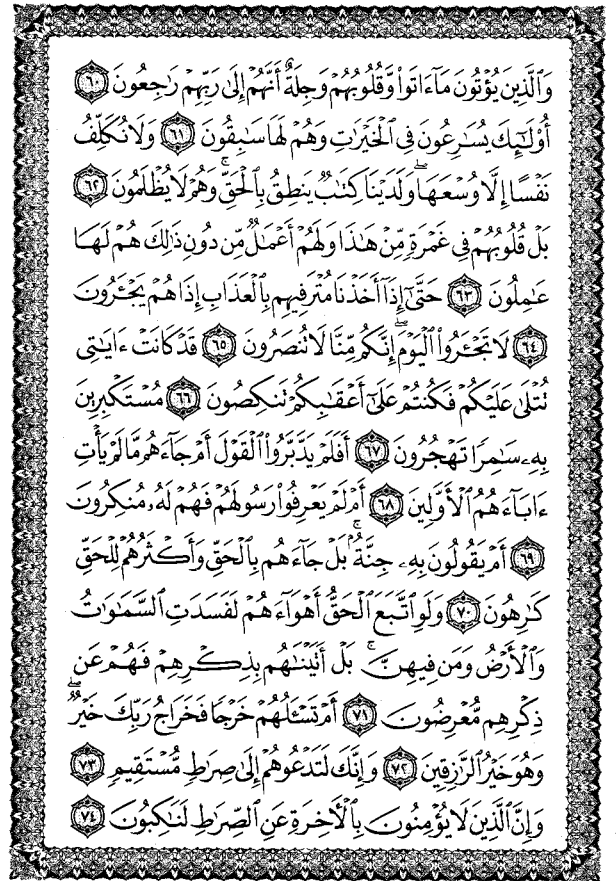 وَٱلَّذِينَ يُؤۡتُونَ مَآ ءَاتَواْ وَّقُلُوبُهُمۡ وَجِلَةٌ أَنَّهُمۡ إِلَىٰ رَبِّهِمۡ رَٰجِعُونَ ٦٠
أُوْلَٰٓئِكَ يُسَٰرِعُونَ فِي ٱلۡخَيۡرَٰتِ وَهُمۡ لَهَا سَٰبِقُونَ ٦١ وَلَا نُكَلِّفُ
نَفۡسًا إِلَّا وُسۡعَهَاۖ وَلَدَيۡنَا كِتَٰبٞ يَنطِقُ بِٱلۡحَقِّۚ وَهُمۡ لَا يُظۡلَمُونَ ٦٢
بَلۡ قُلُوبُهُمۡ فِي غَمۡرَةٖ مِّنۡ هَٰذَا وَلَهُمۡ أَعۡمَٰلٞ مِّن دُونِ ذَٰلِكَ هُمۡ لَهَا
عَٰمِلُونَ ٦٣ حَتَّىٰٓ إِذَآ أَخَذۡنَا مُتۡرَفِيهِم بِٱلۡعَذَابِ إِذَا هُمۡ يَجۡـَٔرُونَ
٦٤ لَا تَجۡـَٔرُواْ ٱلۡيَوۡمَۖ إِنَّكُم مِّنَّا لَا تُنصَرُونَ ٦٥ قَدۡ كَانَتۡ ءَايَٰتِي
تُتۡلَىٰ عَلَيۡكُمۡ فَكُنتُمۡ عَلَىٰٓ أَعۡقَٰبِكُمۡ تَنكِصُونَ ٦٦ مُسۡتَكۡبِرِينَ
بِهِۦ سَٰمِرٗا تَهۡجُرُونَ ٦٧ أَفَلَمۡ يَدَّبَّرُواْ ٱلۡقَوۡلَ أَمۡ جَآءَهُم مَّا لَمۡ يَأۡتِ
ءَابَآءَهُمُ ٱلۡأَوَّلِينَ ٦٨ أَمۡ لَمۡ يَعۡرِفُواْ رَسُولَهُمۡ فَهُمۡ لَهُۥ مُنكِرُونَ
٦٩ أَمۡ يَقُولُونَ بِهِۦ جِنَّةُۢۚ بَلۡ جَآءَهُم بِٱلۡحَقِّ وَأَكۡثَرُهُمۡ لِلۡحَقِّ
كَٰرِهُونَ ٧٠ وَلَوِ ٱتَّبَعَ ٱلۡحَقُّ أَهۡوَآءَهُمۡ لَفَسَدَتِ ٱلسَّمَٰوَٰتُ
وَٱلۡأَرۡضُ وَمَن فِيهِنَّۚ بَلۡ أَتَيۡنَٰهُم بِذِكۡرِهِمۡ فَهُمۡ عَن
ذِكۡرِهِم مُّعۡرِضُونَ ٧١ أَمۡ تَسۡـَٔلُهُمۡ خَرۡجٗا فَخَرَاجُ رَبِّكَ خَيۡرٞۖ
وَهُوَ خَيۡرُ ٱلرَّٰزِقِينَ ٧٢ وَإِنَّكَ لَتَدۡعُوهُمۡ إِلَىٰ صِرَٰطٖ مُّسۡتَقِيمٖ ٧٣
وَإِنَّ ٱلَّذِينَ لَا يُؤۡمِنُونَ بِٱلۡأٓخِرَةِ عَنِ ٱلصِّرَٰطِ لَنَٰكِبُونَ ٧٤